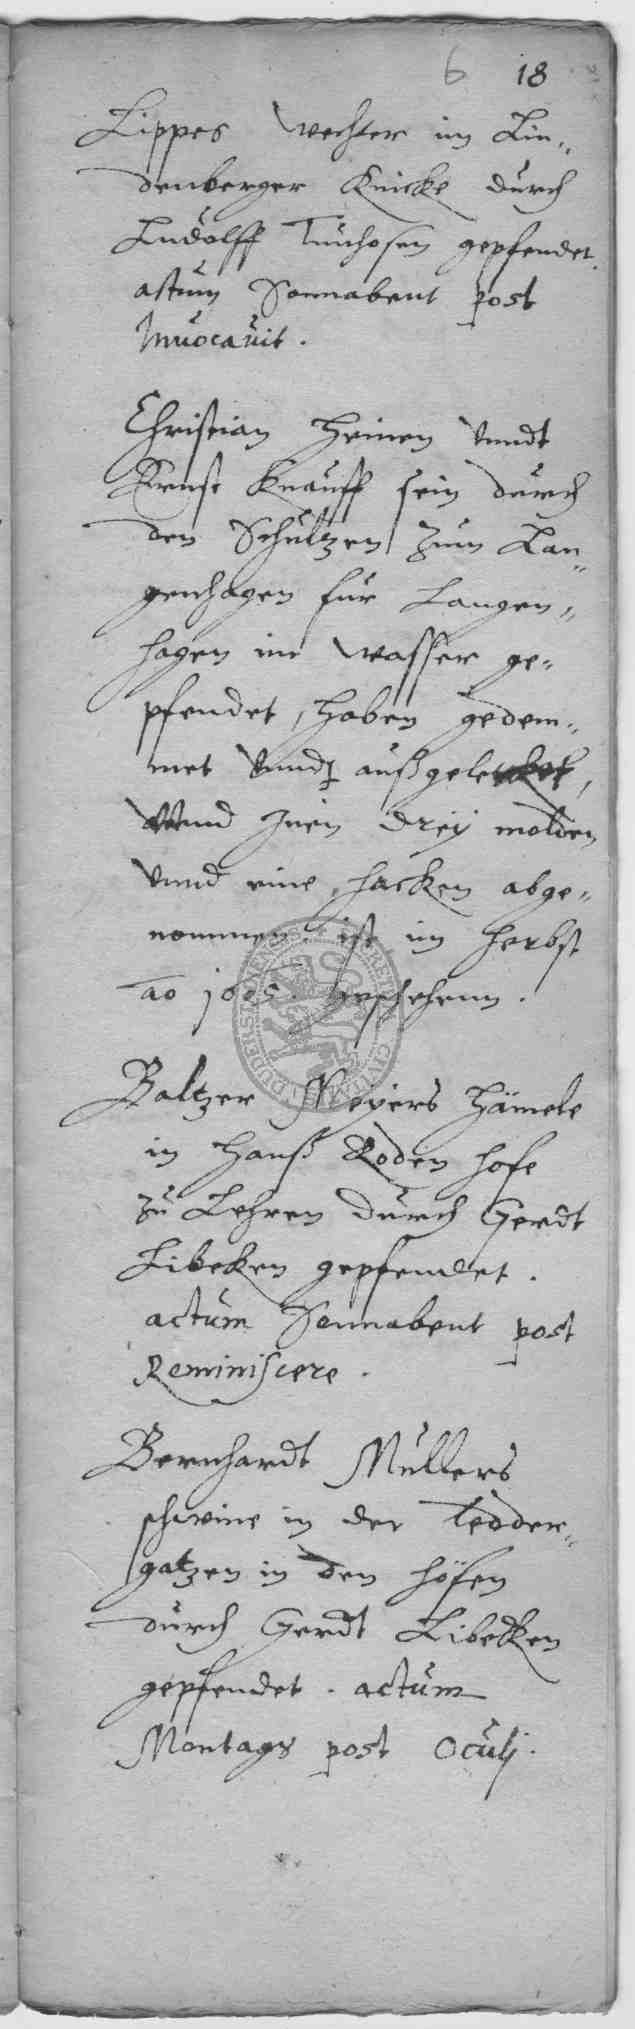 6 18
Lippes Wechter im Lin„
denberger Knicke durch
Ludolff Tuchosen gepfendet.
actum Sonnabent post
Inuocauit.
Christian Heinen vnndt
Ernst Knauff sein durch
den Schultzen zum Lan„
genhagen für Langen„
hagen im Wasser ge„
pfendet, haben gedem„
met vnndt außgelecket,
vnnd Inen dreÿ molden
vnnd eine hacken abge„
nommen. ist im herbst
Ao 1605. geschehenn.
Baltzer Meÿers Hämele
in Hanß Roden hofe
zu Lehren durch Gerdt
Libeken gepfendet.
actum Sonnabent post
Reminiscere.
Bernhardt Müllers
schweine in der Tedder„
gatzen in den höfen
durch Gerdt Libecken
gepfendet. actum
Montags post Oculj.